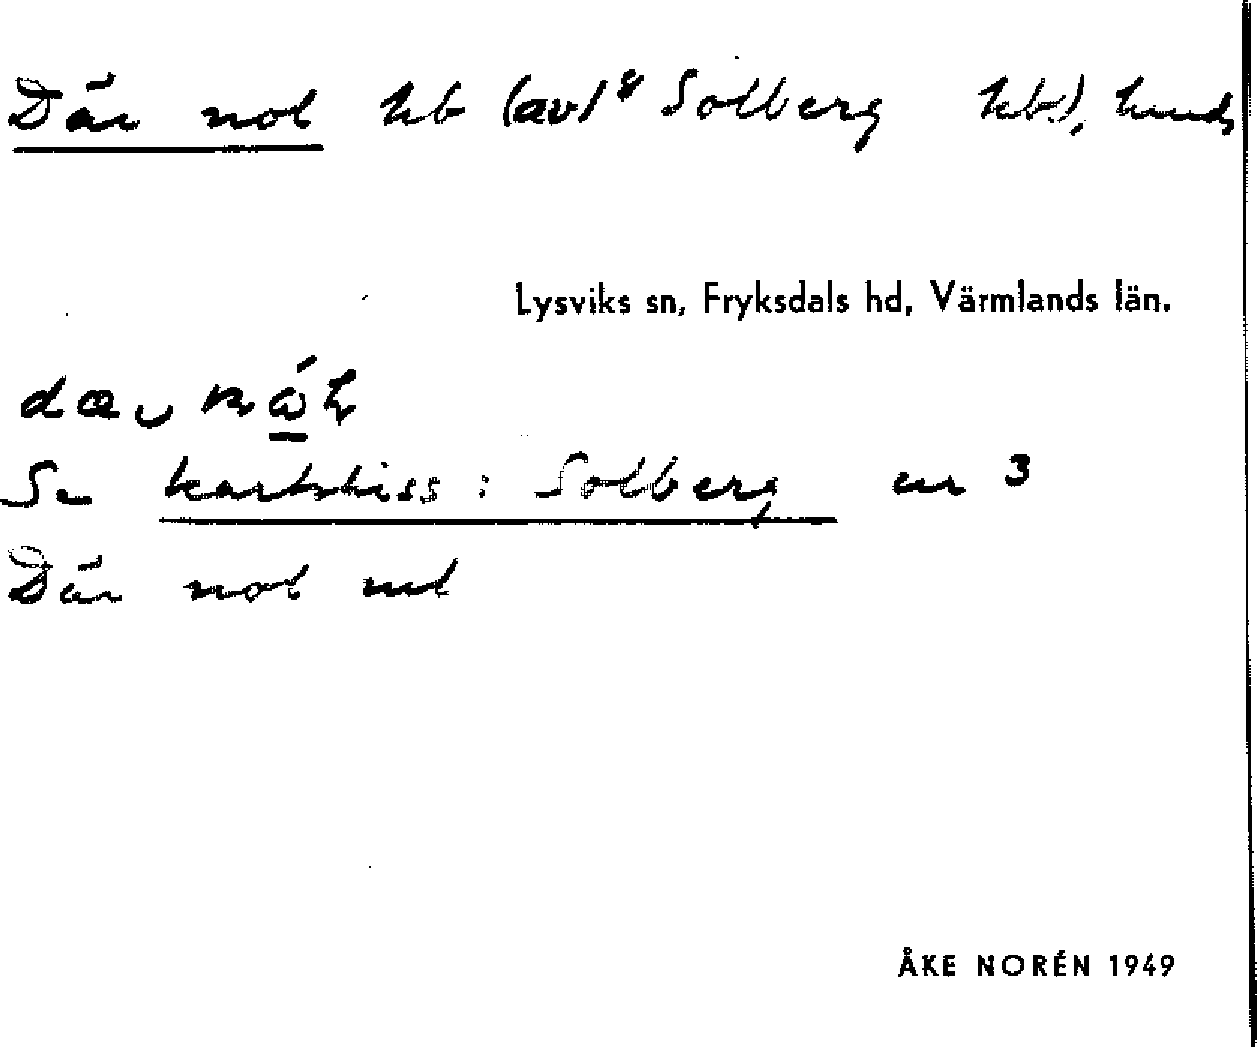 Där nol hb (av Solberg hb), hmds
Lysviks sn, Fryksdals hd, Värmlands län.
Se kartskiss: Solberg nr 3
Där nol
ÅKE NORÉN 1949